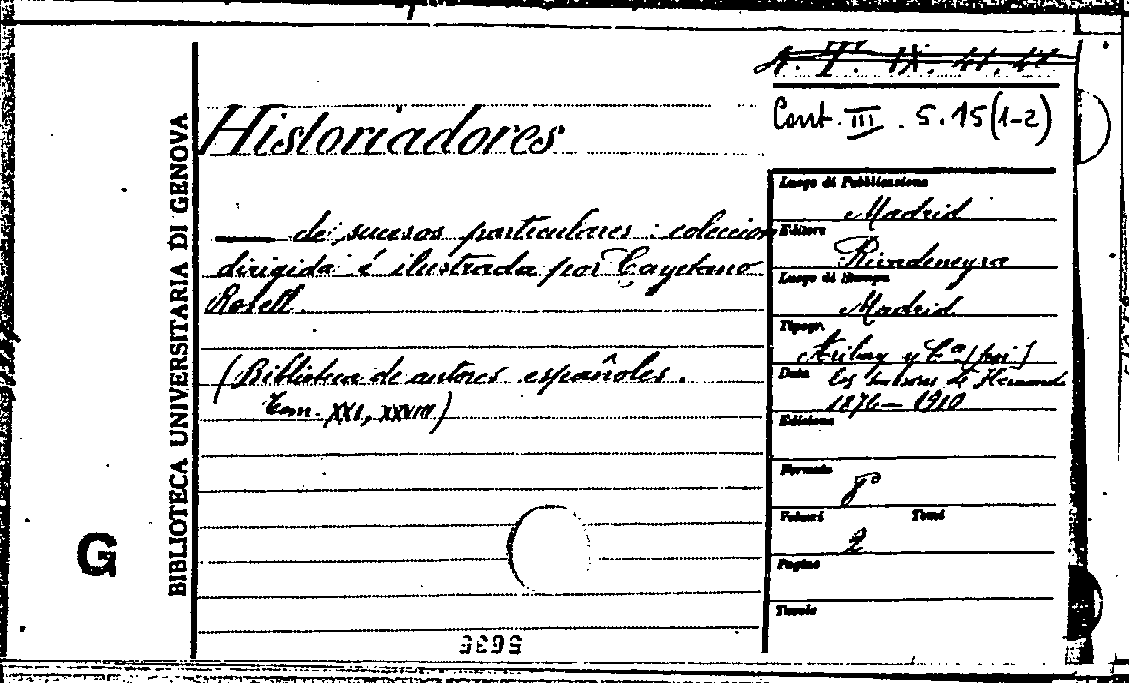 A. T. IX. 41. 44
Cont. III. 5. 15 (1-2)
Historiadores
de sucesos particulares : coleccion
dirigida é ilustrada por Cayetano
Rosell.
(Biblioteca de autores españoles.
Tom. XXI, XXVIII)
BIBLIOTECA UNIVERSITARIA DI GENOVA
G
Luogo di Pubblicazione
Madrid
Editore
Rivadeneyra
Luogo di Stampa
Madrid
Tipogr.
Aribau y Cª (poi)
Data
los sucesores de Hernando
1876 — 1910
Edizione
Formato
8º
Volumi Tomi
2
Pagine
Tavole
5636